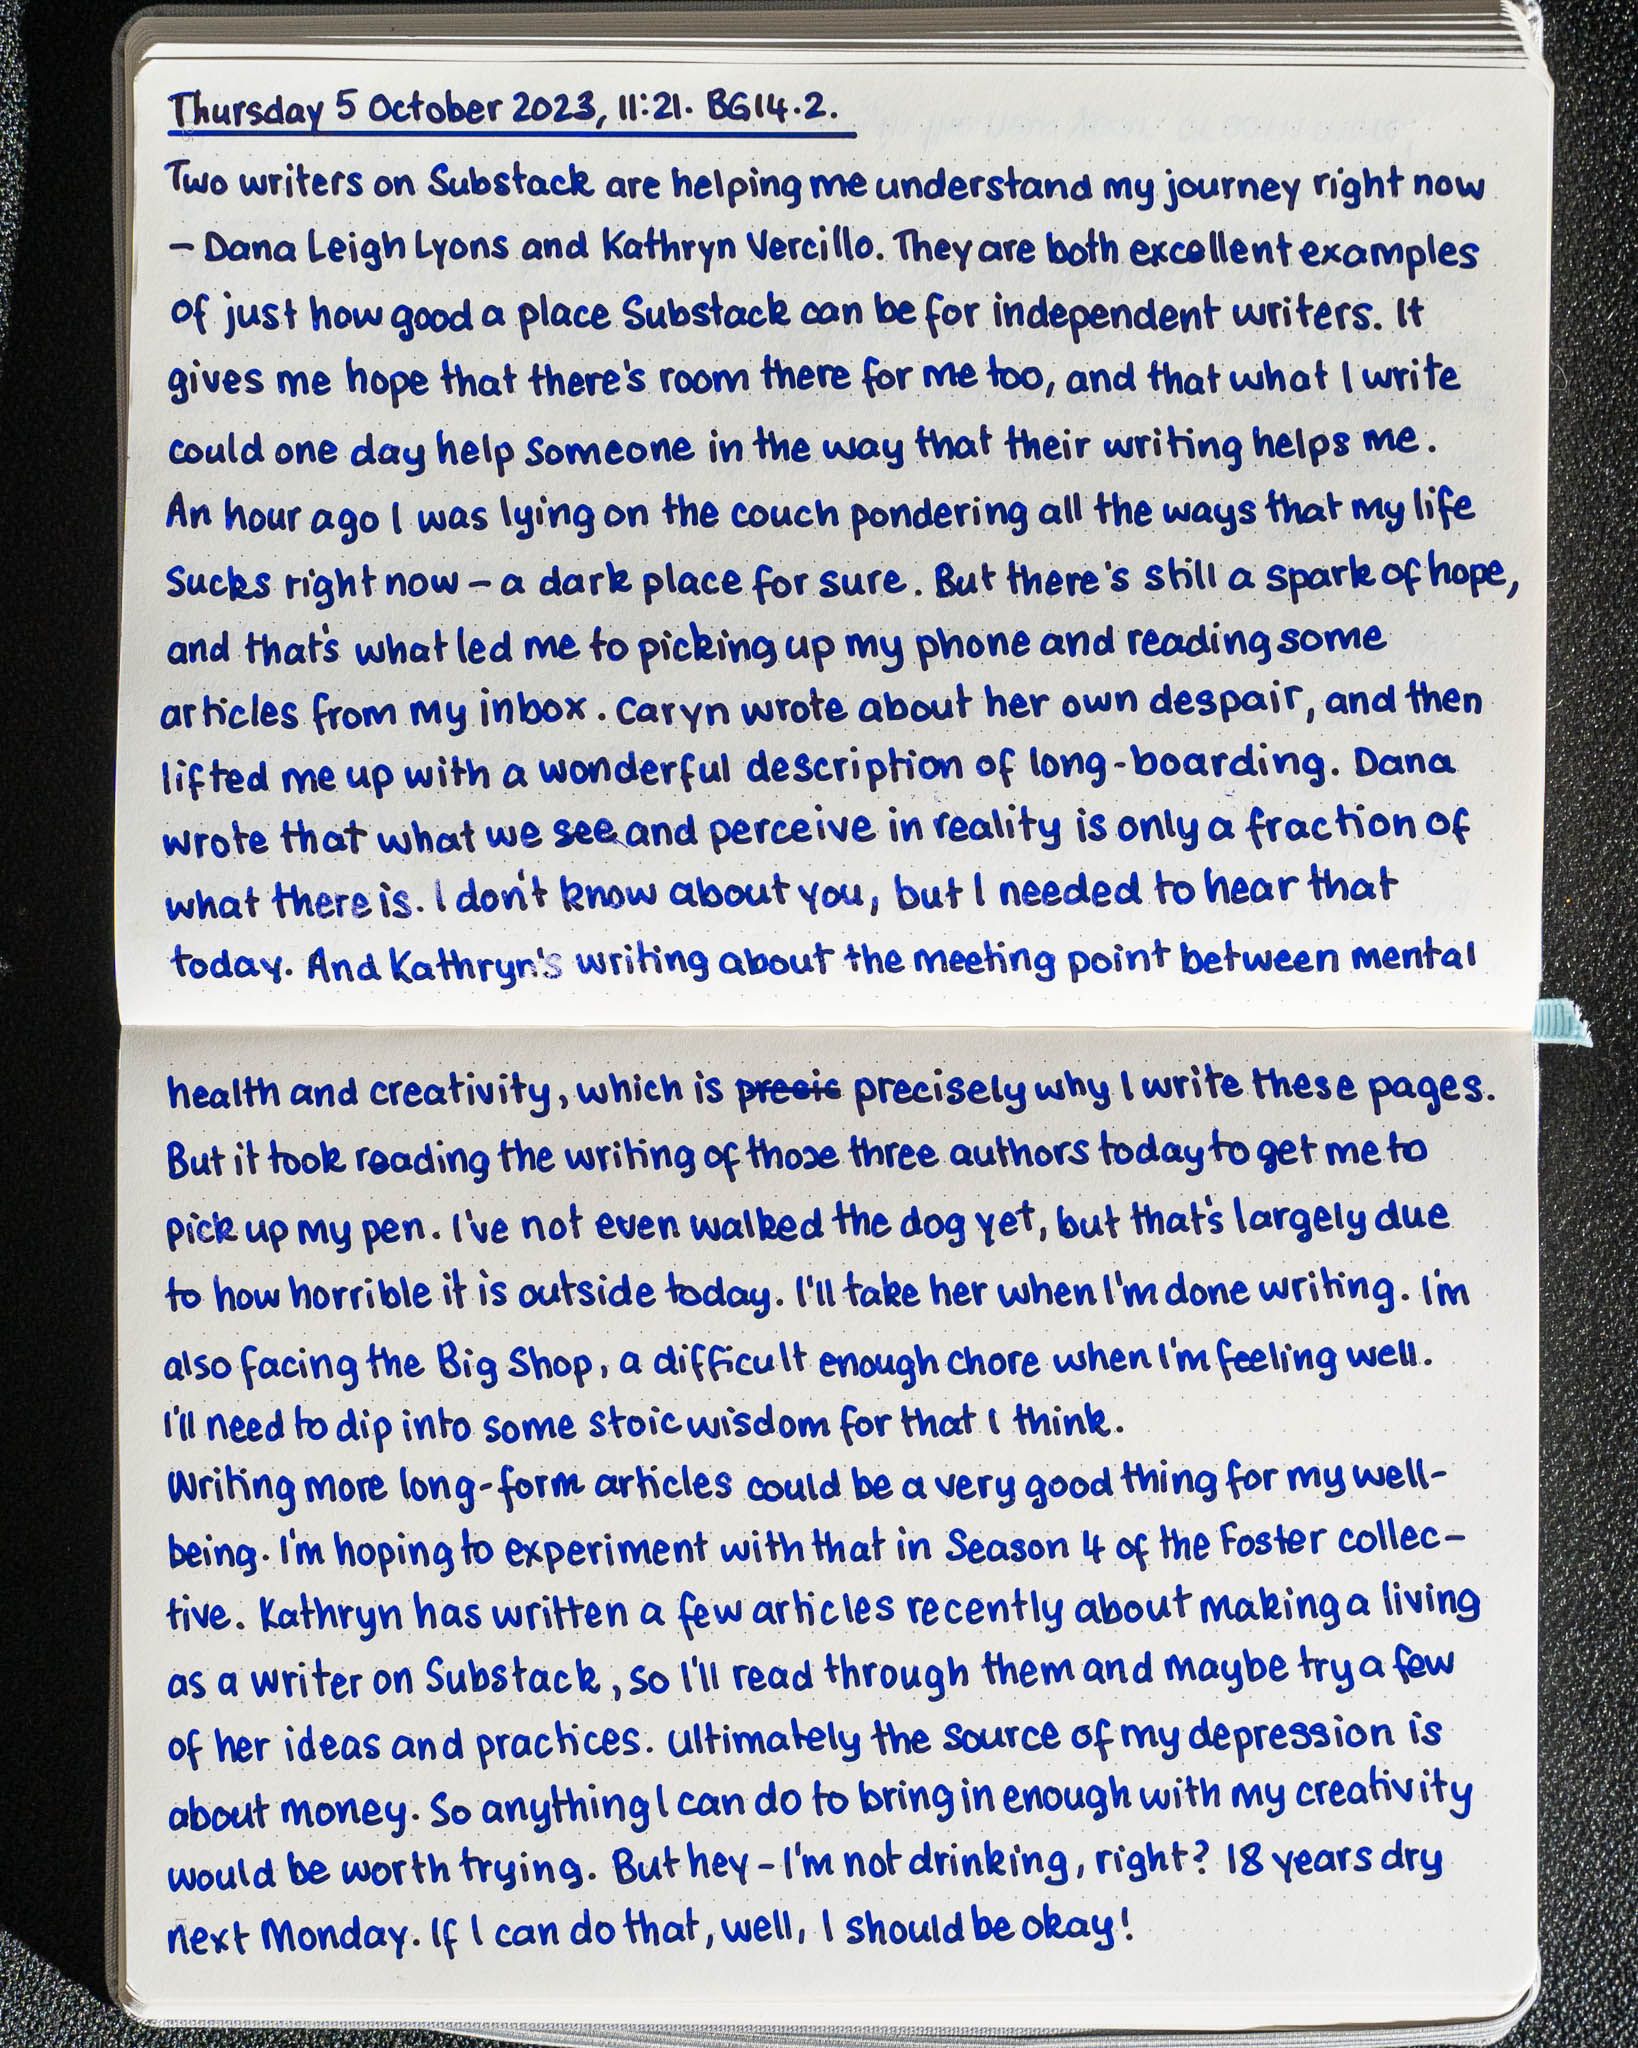 Thursday 5 October 2023, 11:21. BG14.2.
Two writers on Substack are helping me understand my journey right now
– Dana Leigh Lyons and Kathryn Vercillo. They are both excellent examples
of just how good a place Substack can be for independent writers. It
gives me hope that there's room there for me too, and that what I write
could one day help someone in the way that their writing helps me.
An hour ago I was lying on the couch pondering all the ways that my life
sucks right now – a dark place for sure. But there's still a spark of hope,
and that's what led me to picking up my phone and reading some
articles from my inbox. Caryn wrote about her own despair, and then
lifted me up with a wonderful description of long-boarding. Dana
wrote that what we see and perceive in reality is only a fraction of
what there is. I don't know about you, but I needed to hear that
today. And Kathryn's writing about the meeting point between mental
health and creativity, which is precis precisely why I write these pages.
But it took reading the writing of those three authors today to get me to
pick up my pen. I've not even walked the dog yet, but that's largely due
to how horrible it is outside today. I'll take her when I'm done writing. I'm
also facing the Big Shop, a difficult enough chore when I'm feeling well.
I'll need to dip into some stoic wisdom for that I think.
Writing more long-form articles could be a very good thing for my well-
being. I'm hoping to experiment with that in Season 4 of the Foster collec-
tive. Kathryn has written a few articles recently about making a living
as a writer on Substack, so I'll read through them and maybe try a few
of her ideas and practices. Ultimately the source of my depression is
about money. So anything I can do to bring in enough with my creativity
would be worth trying. But hey – I'm not drinking, right? 18 years dry
next Monday. If I can do that, well, I should be okay!